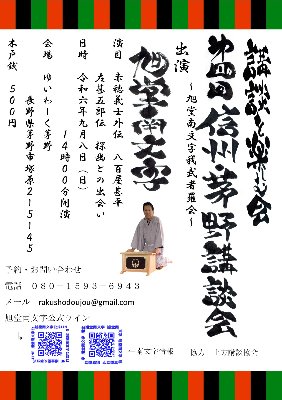 講談を楽しむ会
第四回 信州茅野講談会
~旭堂南文字我武者羅会~
出演
旭堂南文字
演目 赤穂義士外伝 八百屋甚平
左甚五郎伝 探幽との出会い
日時 令和六年九月八日(日)
14時00分開演
会場 ゆいわーく茅野
長野県茅野市塚原2-5-45
木戸銭 500円
予約・お問い合わせ
電話 080-1593-6943
メール rakushodoujou@gmail.com
旭堂南文字公式ライン
協力 上方講談協会